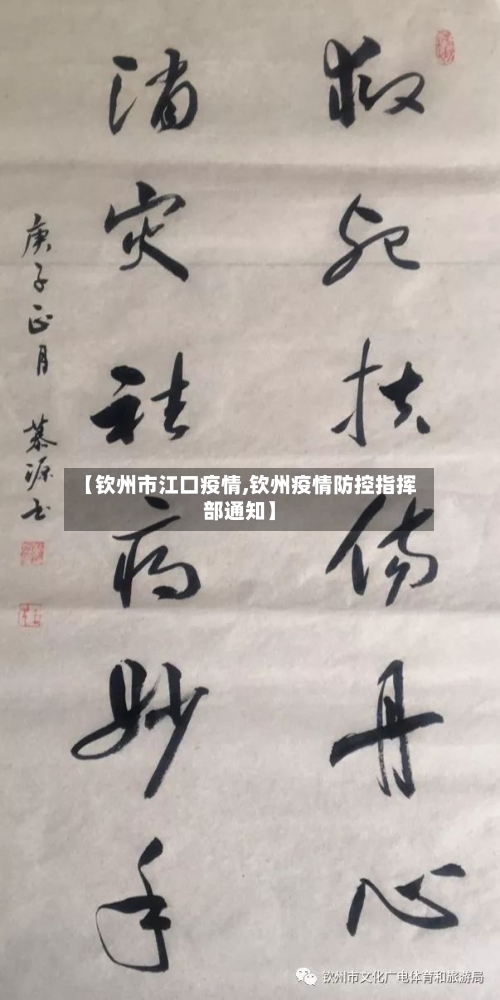 救死扶伤丹心
消灾祛病妙手
庚子正月 慕源书
【钦州市江口疫情,钦州疫情防控指挥
部通知】
钦州市文化广电体育和旅游局